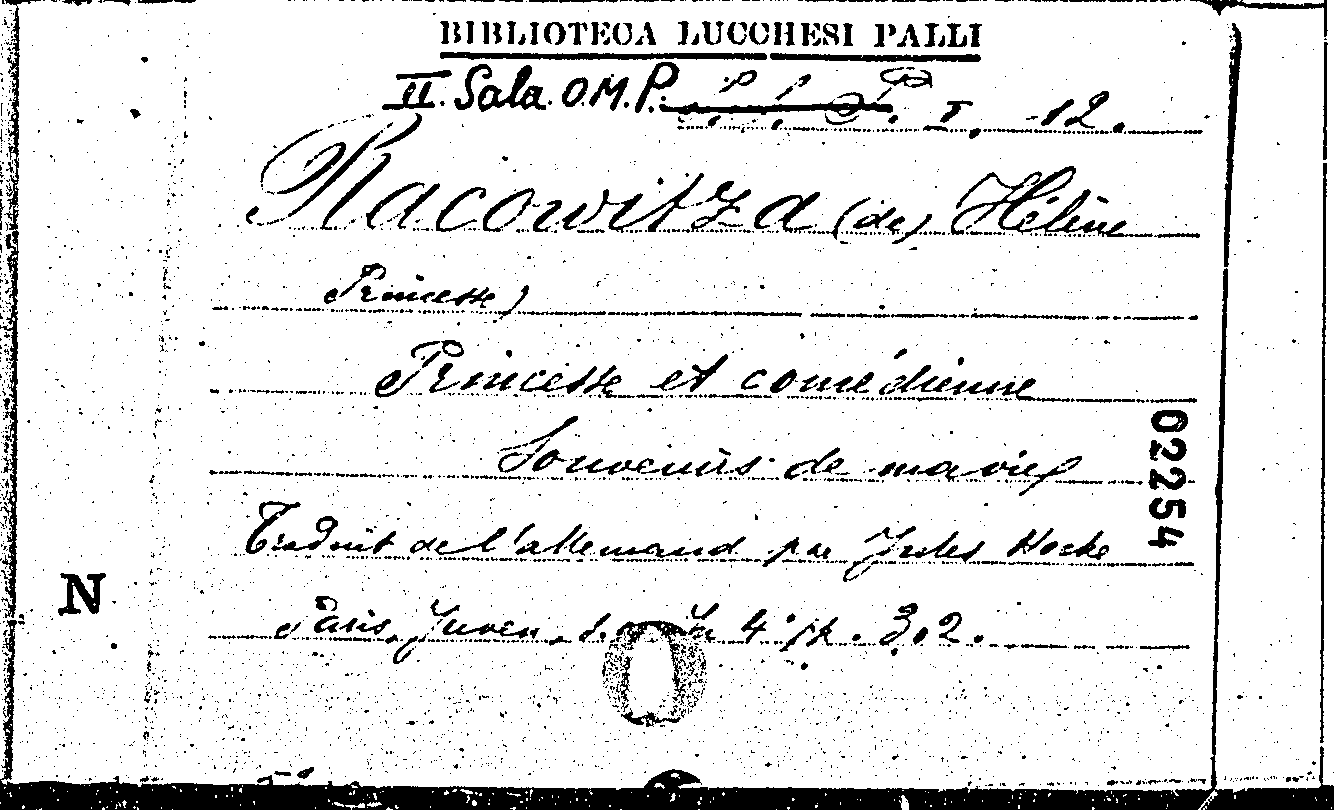 BIBLIOTECA LUCCHESI PALLI
II. Sala. O.M.P. I. 12.
Racowitza (de) Hélène
Princesse)
Princesse et comédienne
Souvenirs de ma vie
Traduit de l'allemand par Jules Hoche
Paris, Juven, s. 4° p. 302.
02254
N